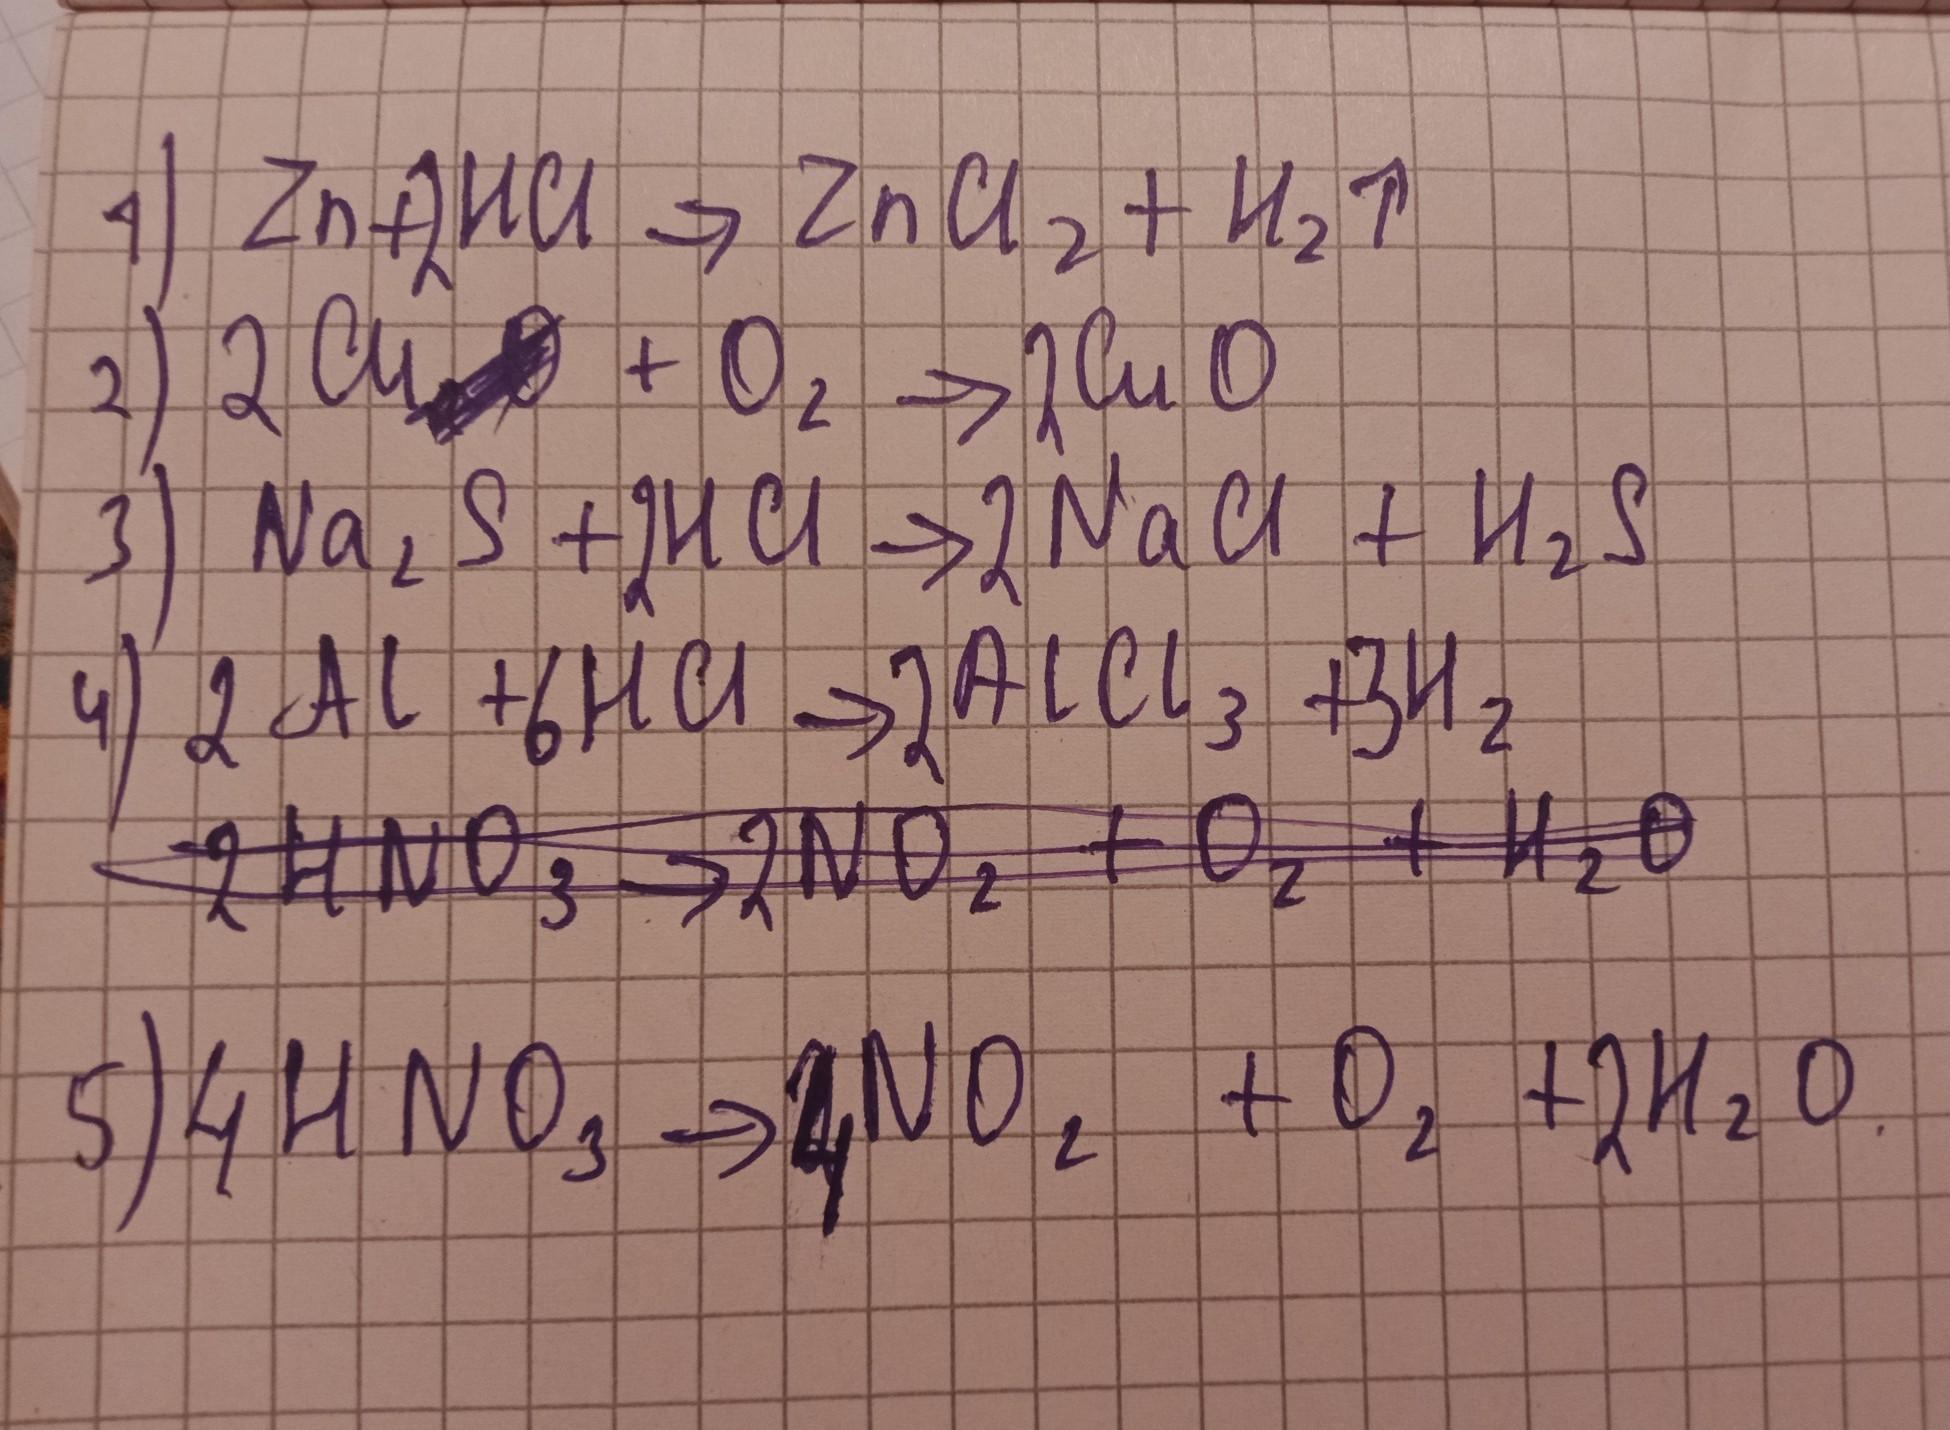 1) Zn+2HCl → ZnCl₂ + H₂↑
2) 2Cu + O₂ → 2CuO
3) Na₂S + 2HCl → 2NaCl + H₂S
4) 2Al + 6HCl → 2AlCl₃ + 3H₂
2HNO₃ → 2NO₂ + O₂ + H₂O
5) 4HNO₃ → 4NO₂ + O₂ + 2H₂O.